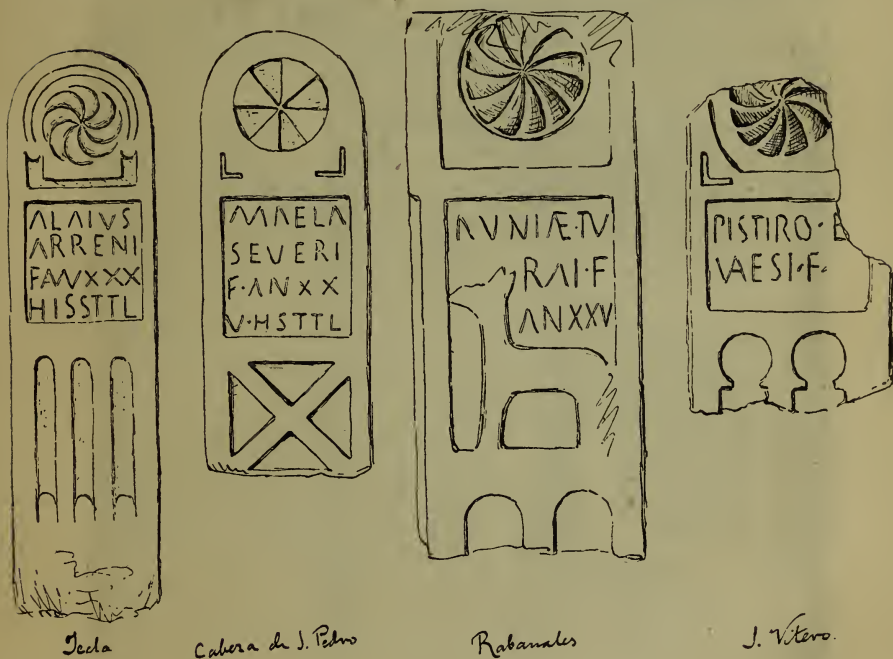 ALAIVS
ARRENI
FANXXX
HISSTTL
MAELA
SEVERI
F·ANXX
V·HSTTL
AVNIÆ·TV
RAI·F
ANXXV
PISTIRO·
VAESI·F·
Tecla
Cabeza de S. Pedro
Rabanales
S. Vitero.